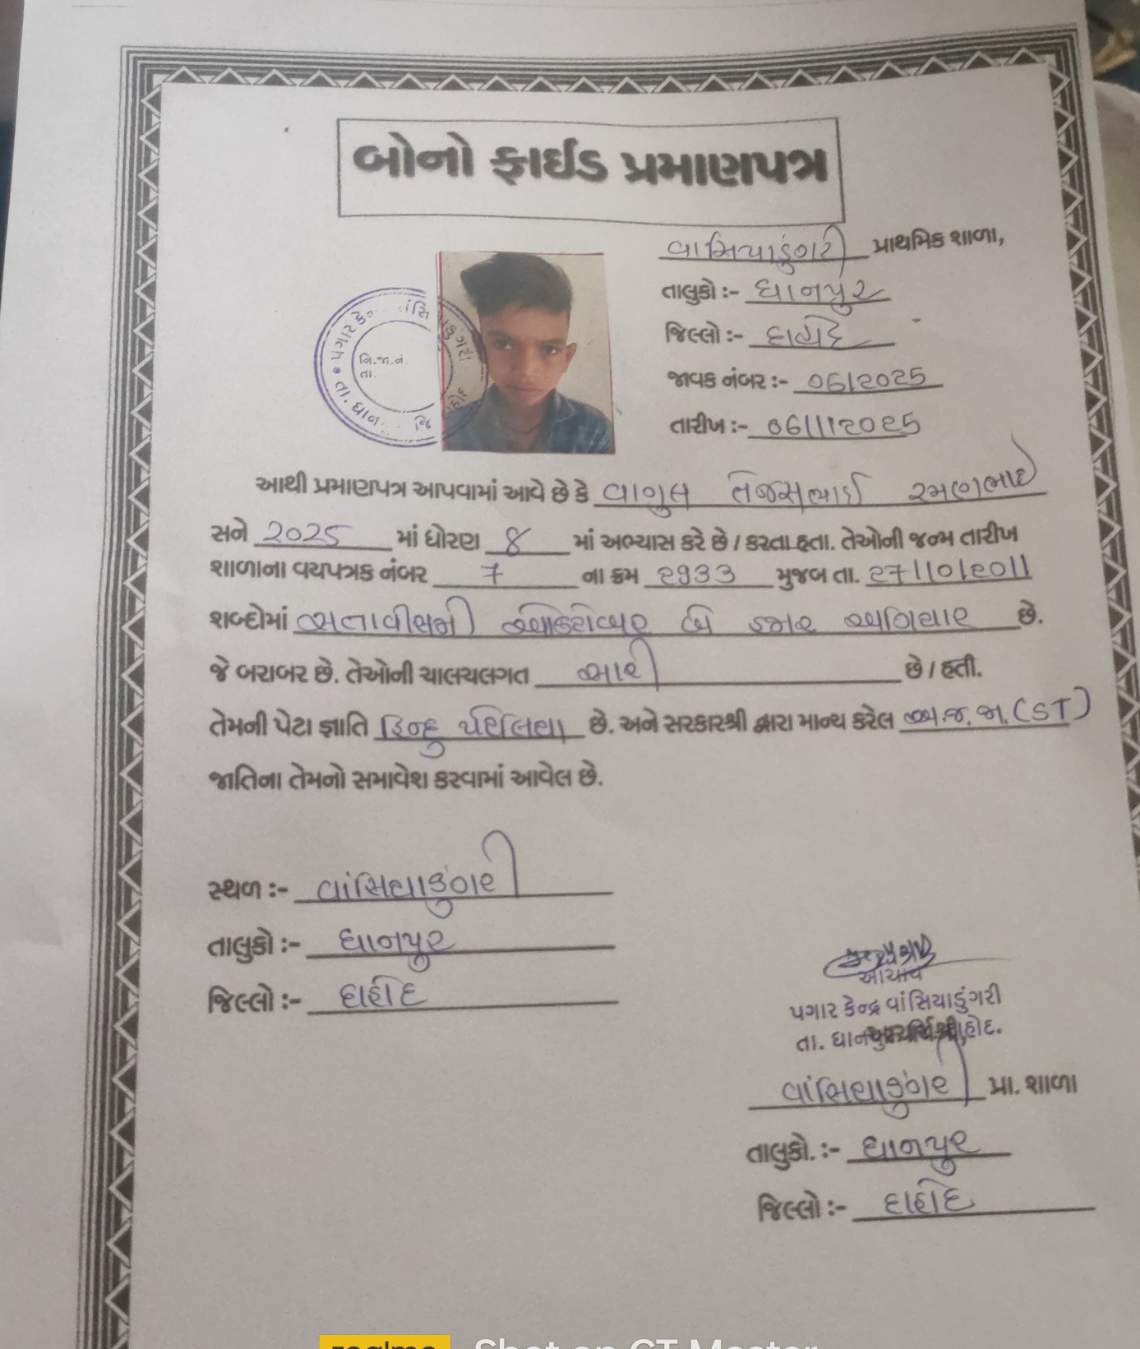 બોનો ફાઈડ પ્રમાણપત્ર
વાસિયાડુંગરી પ્રાથમિક શાળા,
તાલુકો :- ધાનપુર
જિલ્લો :- દાહોદ
જાવક નંબર :- 06/2025
તારીખ :- 06/11/2025
પગાર કે
તા. ધાન
આથી પ્રમાણપત્ર આપવામાં આવે છે કે વાગુલ તેજસભાઈ રમણભાઈ
સને 2025 માં ધોરણ 8 માં અભ્યાસ કરે છે / કરતા હતા. તેઓની જન્મ તારીખ
શાળાના વયપત્રક નંબર 7 ના ક્રમ ૨૧33 મુજબ તા. ૨૭/10/૨૦11
શબ્દોમાં સતાવીસમી ઓક્ટોબર બે હજાર અગિયાર છે.
જે બરાબર છે. તેઓની ચાલચલગત સારી છે / હતી.
તેમની પેટા જ્ઞાતિ હિન્દુ છે. અને સરકારશ્રી દ્વારા માન્ય કરેલ અ.જ.જા.(ST)
જાતિના તેમનો સમાવેશ કરવામાં આવેલ છે.
સ્થળ :- વાંસિયાડુંગરી
તાલુકો :- ધાનપુર
જિલ્લો :- દાહોદ
આચાર્ય
પગાર કેન્દ્ર વાંસિયાડુંગરી
તા. ધાનપુર હોદ.
વાંસિયાડુંગરી પ્રા. શાળા
તાલુકો. :- ધાનપુર
જિલ્લો :- દાહોદ
realme Shot on GT Master